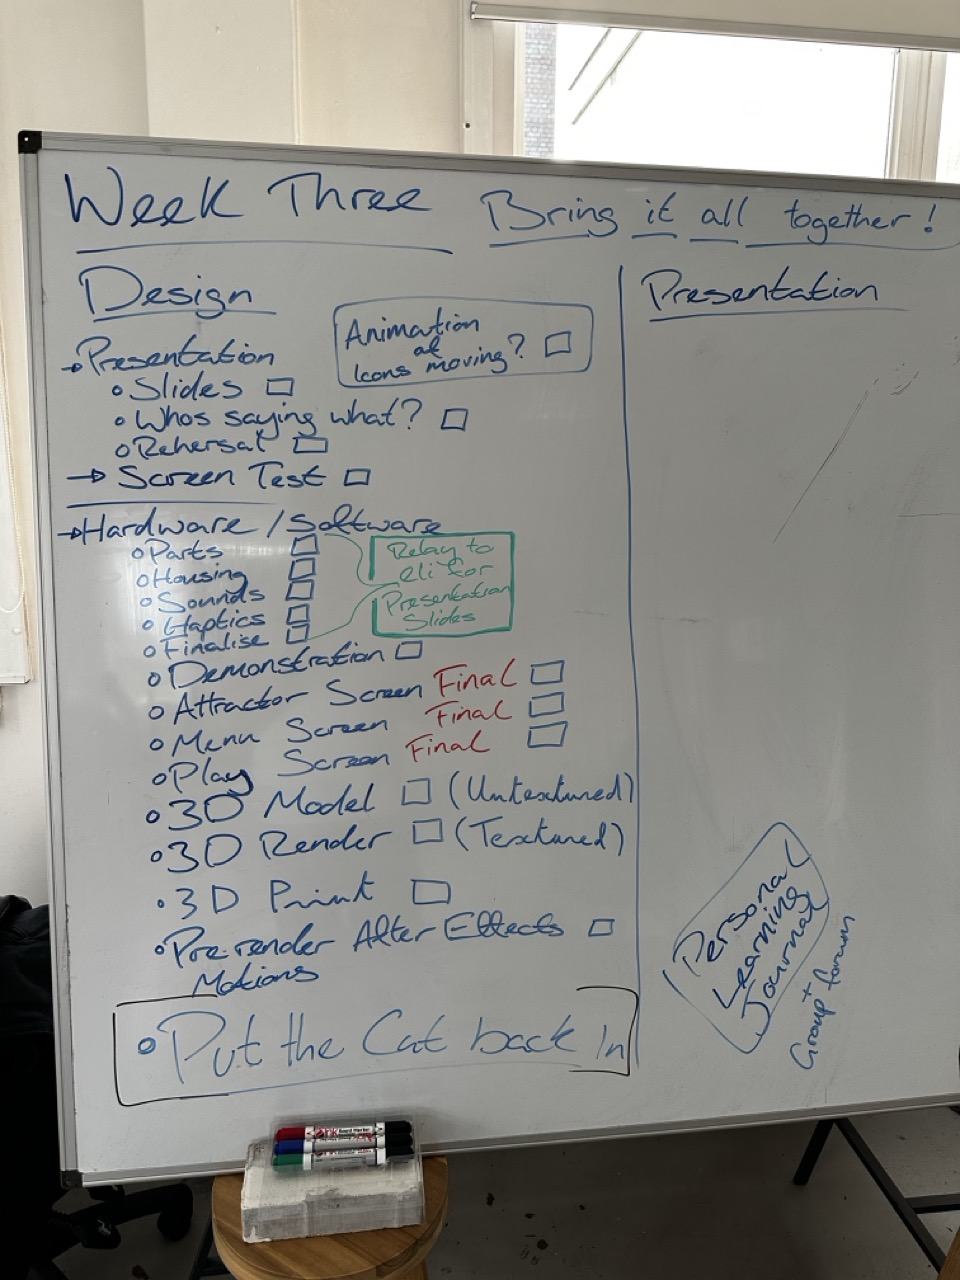 Week Three
Bring it all together!
Design
Animation
of
Icons moving?
→Presentation
Slides
Whos saying what?
Rehersal
→ Screen Test
→Hardware / Software
Parts
Housing
Sounds
Haptics
Finalise
Relay to
eli for
Presentation
Slides
Demonstration
Attractor Screen Final
Menu Screen Final
Play Screen Final
3D Model (Untextured)
3D Render (Textured)
3D Print
Pre-render After Effects
Motions
Put the Cat back In
Presentation
Personal
Learning
Journal
+
Group forum